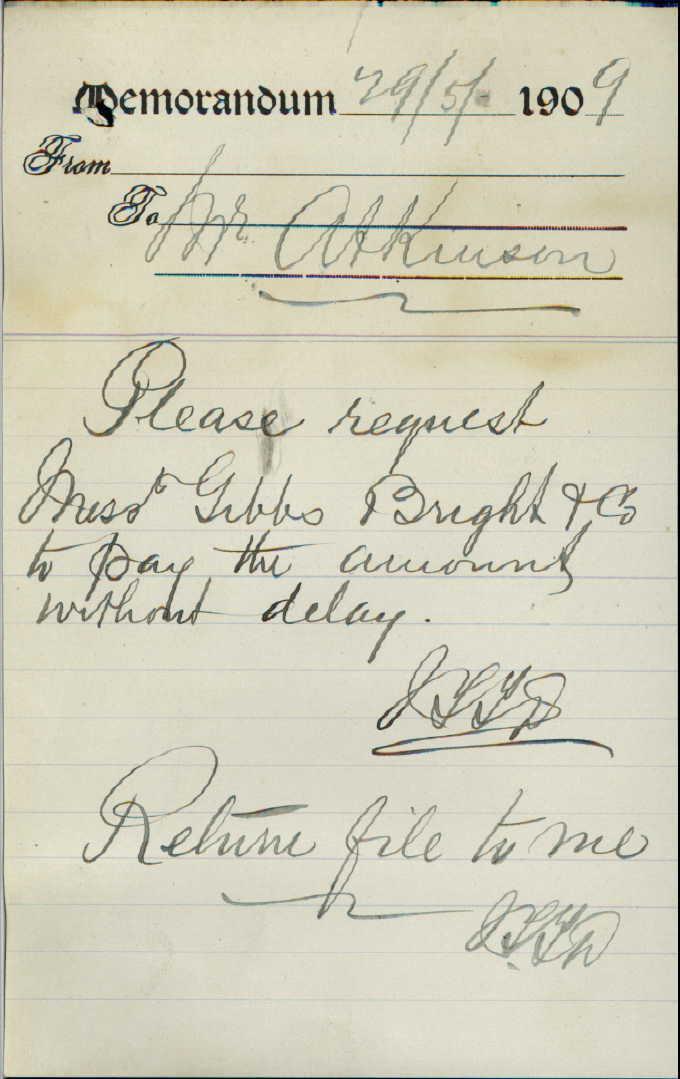 Memorandum 29/5/ 1909
From
To Mr Atkinson
Please request
Messrs Gibbs Bright & Co
to pay the amount
without delay.
Return file to me